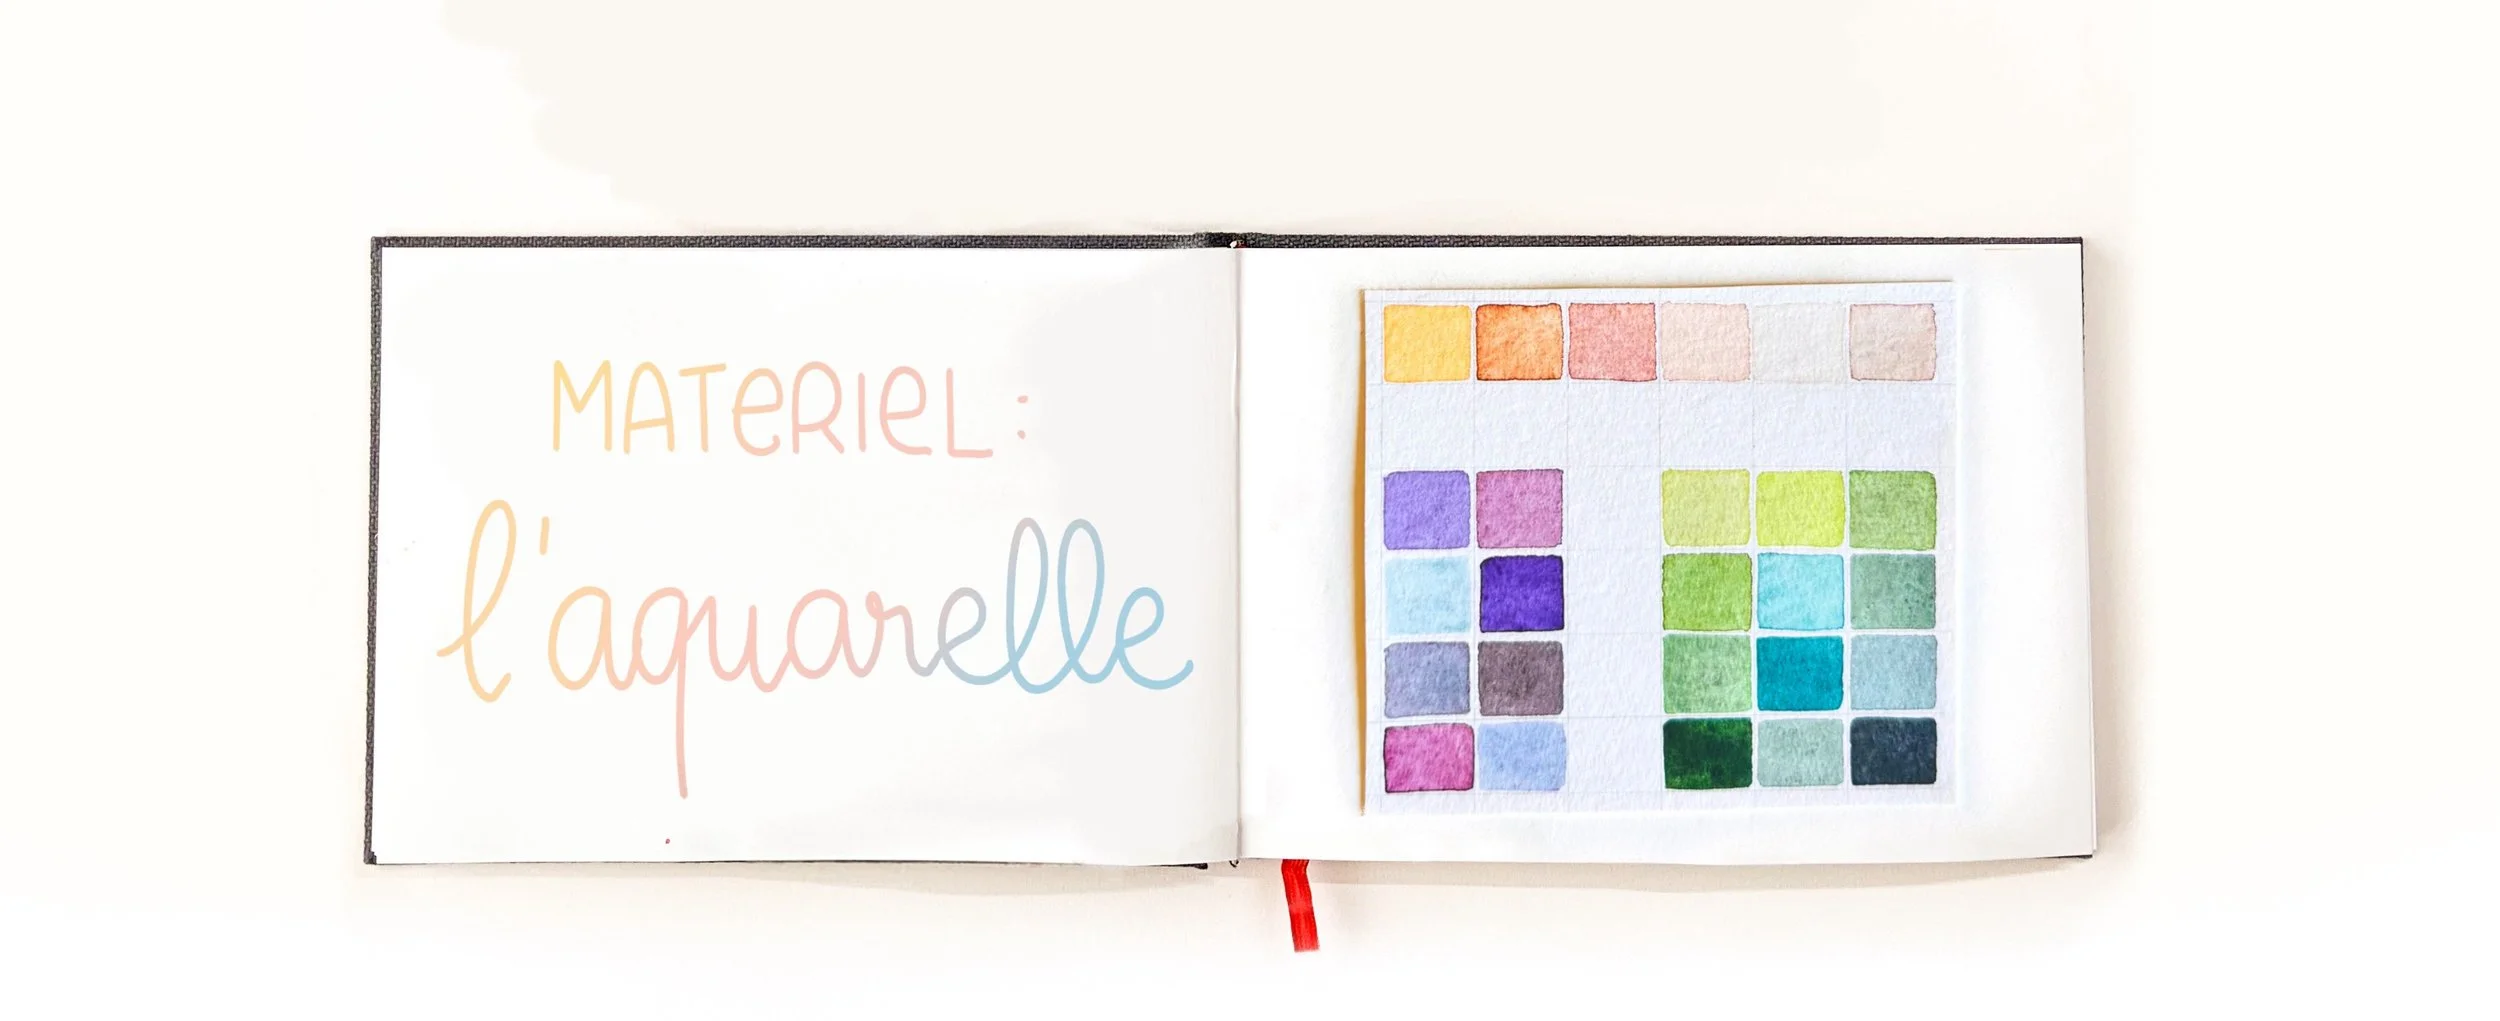 MATERIEL :
l'aquarelle